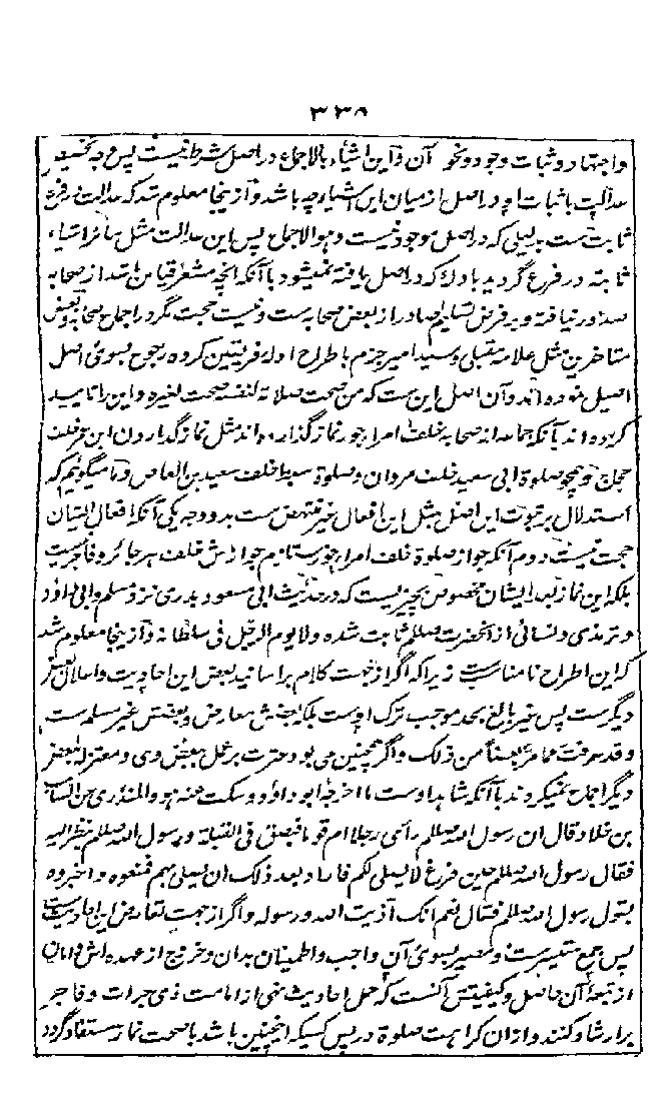 ۳۳۵
واجتهاد و ثبات وجود و نحو آن و این اشیاء بالاجماع در اصل شرط نیست پس وجه تخصیص
عدالت باثبات او در اصل از میان این اشیاء چه باشد و از اینجا معلوم شد که عدالت در فرع
ثابت ست بدلیلی که در اصل موجود نیست و هو الاجماع پس این عدالت مثل سائر اشیاء
ثابته در فرع گردید با دله که در اصل یافته نمیشود با آنکه انچه مشعر قیاس باشد از صحابه
صدور نیافته و بر فرض تسلیم صادر از بعض صحابه ست و نیست حجت مگر در اجماع صحابه و بعض
متاخرین مثل علامه مقبلی و سید امیر جزم باطراح ادله فریقین کرده رجوع بسوی اصل
اصیل نموده اند و آن اصل این ست که من صحت صلاته لنفسه صحت لغیره و این را تایید
کرده اند بآنکه جماعه از صحابه خلف امراء جور نماز گذارده اند مثل نماز گذاردن ابن عمر خلف
حجاج و همچو صلوة ابی سعید خلف مروان و صلوة سبط خلف سعید بن العاص و ما میگوئیم که
استدلال بر ثبوت این اصل بمثل این افعال غیر منتهض ست بدو وجه یکی آنکه افعال ایشان
حجت نیست دوم آنکه جواز صلوة خلف امراء جور مستلزم جوازش خلف هر جائر و فاجر نیست
بلکه این نماز پس ایشان مخصوص بچیزیست که در حدیث ابی مسعود بدری نزد مسلم و ابی داود
و ترمذی و نسائی از آنحضرت صلعم ثابت شده و لا یوم الرجل فی سلطانه و از اینجا معلوم شد
که این اطراح نا مناسب ست زیرا که اگر از جهت کلام بر اسانید بعض این احادیث و اعلال بعض
دیگر ست پس غیر بالغ بحد موجب ترک اوست بلکه بعضش معارض و بعضش غیر مسلم ست
و قد عرفت مما مر بعضاً من ذلک و اگر همچنین می بود حضرت بر عمل بعض وی و معتزله بعض
دیگر اجماع نمیکردند با آنکه شاهد اوست ما اخرجه ابو داود و سکت عنه هو و المنذری عن السائب
بن خلاد قال ان رسول الله صلعم رأی رجلا ام قوما فبصق فی القبلة و رسول الله صلعم ینظر الیه
فقال رسول الله صلعم حین فرغ لا یصلی لکم فاراد بعد ذلک ان یصلی بهم فمنعوه و اخبروه
بقول رسول الله صلعم فقال نعم انک آذیت الله و رسوله و اگر از جهت تعارض این احادیث ست
پس جمع متعین ست و مصیر بسوی آن واجب و اطمینان بدان و خروج از عهده اش و امان
از تبعه آن حاصل و کیفیتش آنست که حمل احادیث نهی از امامت ذی جرات و فاجر
بر ارشاد کنند و از ان کراهت صلوة در پس کسیکه اینچنین باشد با صحت نماز مستفاد گردد